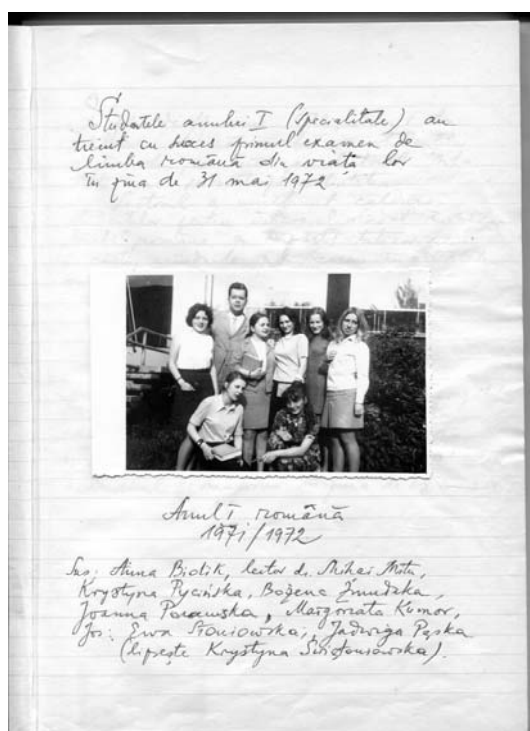 Studentele anului I (specialitate) au
trecut cu succes primul examen de
limba română din viața lor
în ziua de 31 mai 1972
Anul I română
1971/1972
Sus: Anna Biolik, lector dr. Mihai Mitu,
Krystyna Bożena
Joanna Porawska, Małgorzata Kumor,
Jos: Ewa Jadwiga Pąska
(lipsește Krystyna